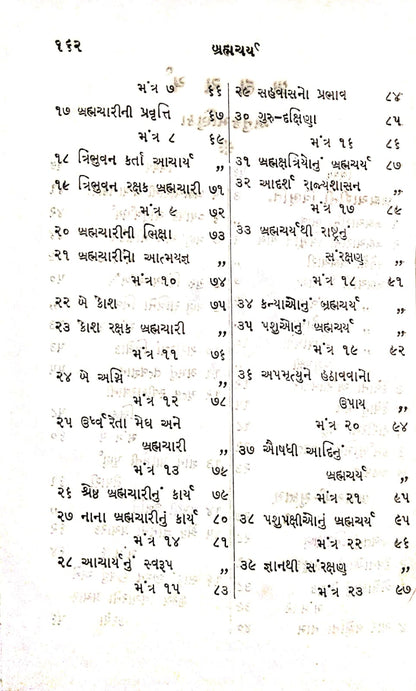 ૧૬૨
બ્રહ્મચર્ય
મંત્ર ૭ ૬૬
૧૭ બ્રહ્મચારીની પ્રવૃત્તિ ૬૭
મંત્ર ૮ ૬૯
૧૮ ત્રિભુવન કર્તા આચાર્ય ,,
૧૯ ત્રિભુવન રક્ષક બ્રહ્મચારી ૭૧
મંત્ર ૯ ૭૨
૨૦ બ્રહ્મચારીની ભિક્ષા ૭૩
૨૧ બ્રહ્મચારીનો આત્મયજ્ઞ ,,
મંત્ર ૧૦ ૭૪
૨૨ બે કોશ ૭૫
૨૩ કોશ રક્ષક બ્રહ્મચારી ,,
મંત્ર ૧૧ ૭૬
૨૪ બે અગ્નિ ,,
મંત્ર ૧૨ ૭૮
૨૫ ઉર્ધ્વરેતા મેઘ અને
બ્રહ્મચારી ,,
મંત્ર ૧૩ ૭૯
૨૬ શ્રેષ્ઠ બ્રહ્મચારીનું કાર્ય ૭૯
૨૭ નાના બ્રહ્મચારીનું કાર્ય ૮૦
મંત્ર ૧૪ ૮૧
૨૮ આચાર્યનું સ્વરૂપ ,,
મંત્ર ૧૫ ૮૩
૨૯ સહવાસનો પ્રભાવ ૮૪
૩૦ ગુરુ-દક્ષિણા ૮૫
મંત્ર ૧૬ ૮૬
૩૧ બ્રહ્મક્ષત્રિયોનું બ્રહ્મચર્ય ૮૭
૩૨ આદર્શ રાજ્યશાસન ,,
મંત્ર ૧૭ ૮૯
૩૩ બ્રહ્મચર્યથી રાષ્ટ્રનું
સંરક્ષણ ,,
મંત્ર ૧૮ ૯૧
૩૪ કન્યાઓનું બ્રહ્મચર્ય ,,
૩૫ પશુઓનું બ્રહ્મચર્ય ,,
મંત્ર ૧૯ ૯૨
૩૬ અપમૃત્યુને હઠાવવાનો
ઉપાય ,,
મંત્ર ૨૦ ૯૪
૩૭ ઔષધી આદિનું
બ્રહ્મચર્ય ,,
મંત્ર ૨૧ ૯૫
૩૮ પશુપક્ષીઓનું બ્રહ્મચર્ય ૯૫
મંત્ર ૨૨ ૯૬
૩૯ જ્ઞાનથી સંરક્ષણ ,,
મંત્ર ૨૩ ૯૭